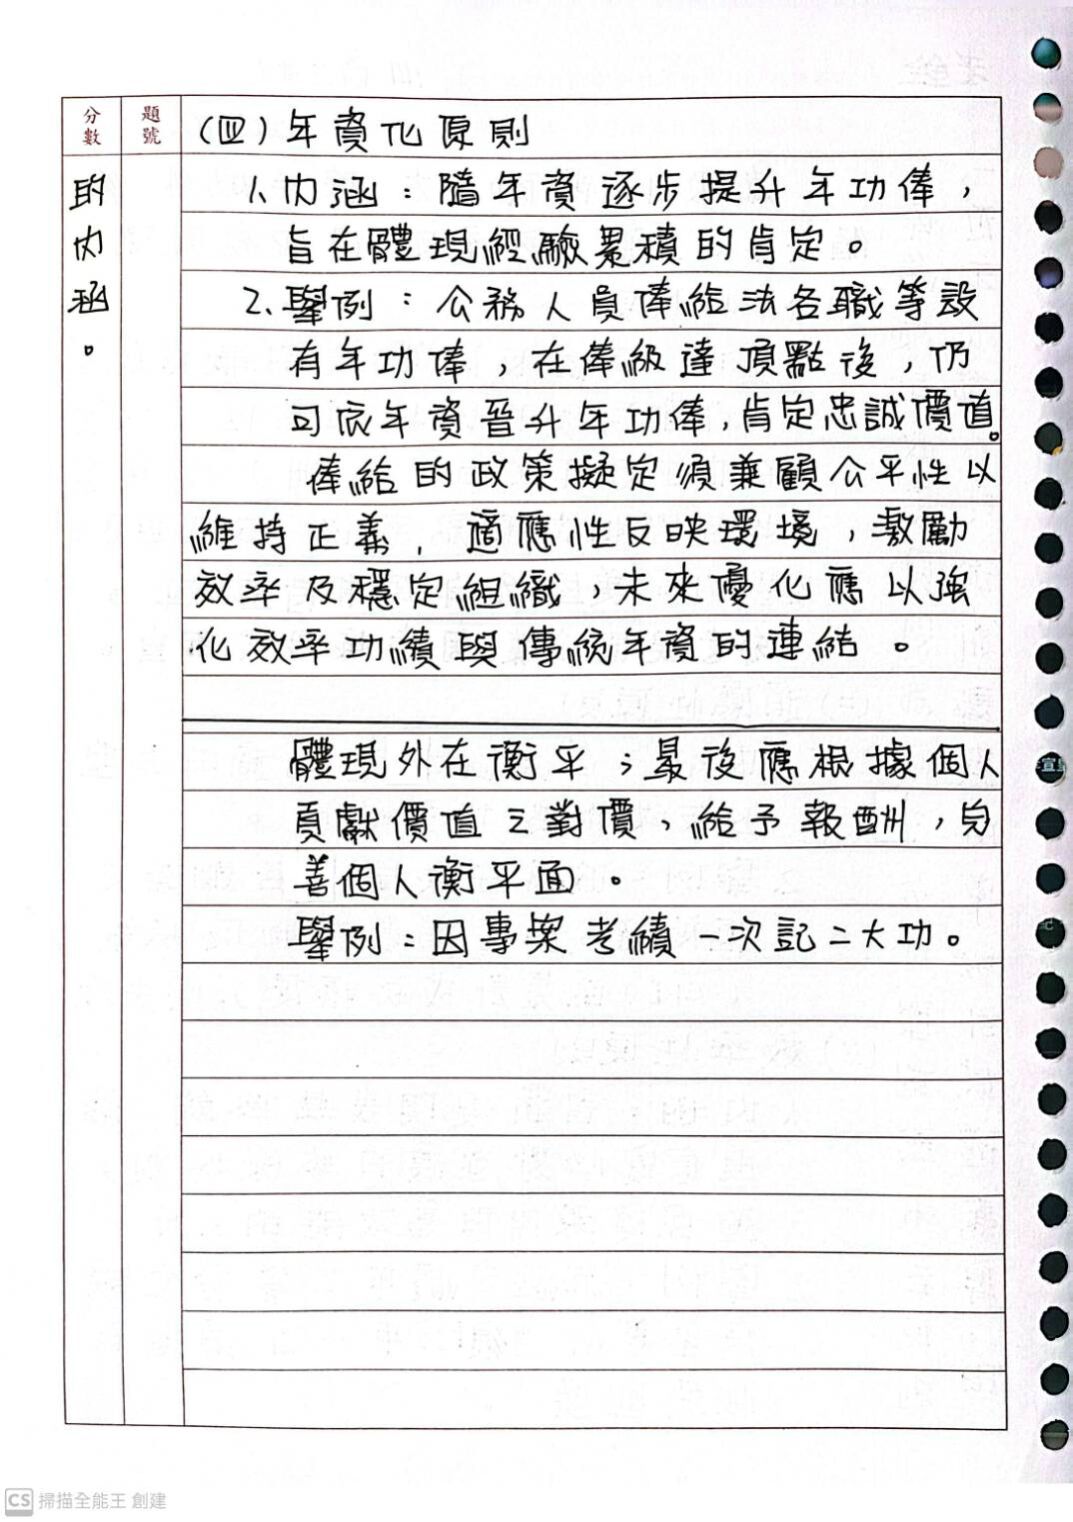 分數
題號
的內涵。
(四)年資化原則
1、內涵：隨年資逐步提升年功俸，
旨在體現經驗累積的肯定。
2、舉例：公務人員俸給法各職等設
有年功俸，在俸級達頂點後，仍
可依年資晉升年功俸，肯定忠誠價值。
俸給的政策擬定須兼顧公平性以
維持正義、適應性反映環境，激勵
效率及穩定組織，未來優化應以強
化效率功績與傳統年資的連結。
體現外在衡平；最後應根據個人
貢獻價值之對價，給予報酬，
善個人衡平面。
舉例：因專案考績一次記二大功。
CS 掃描全能王 創建